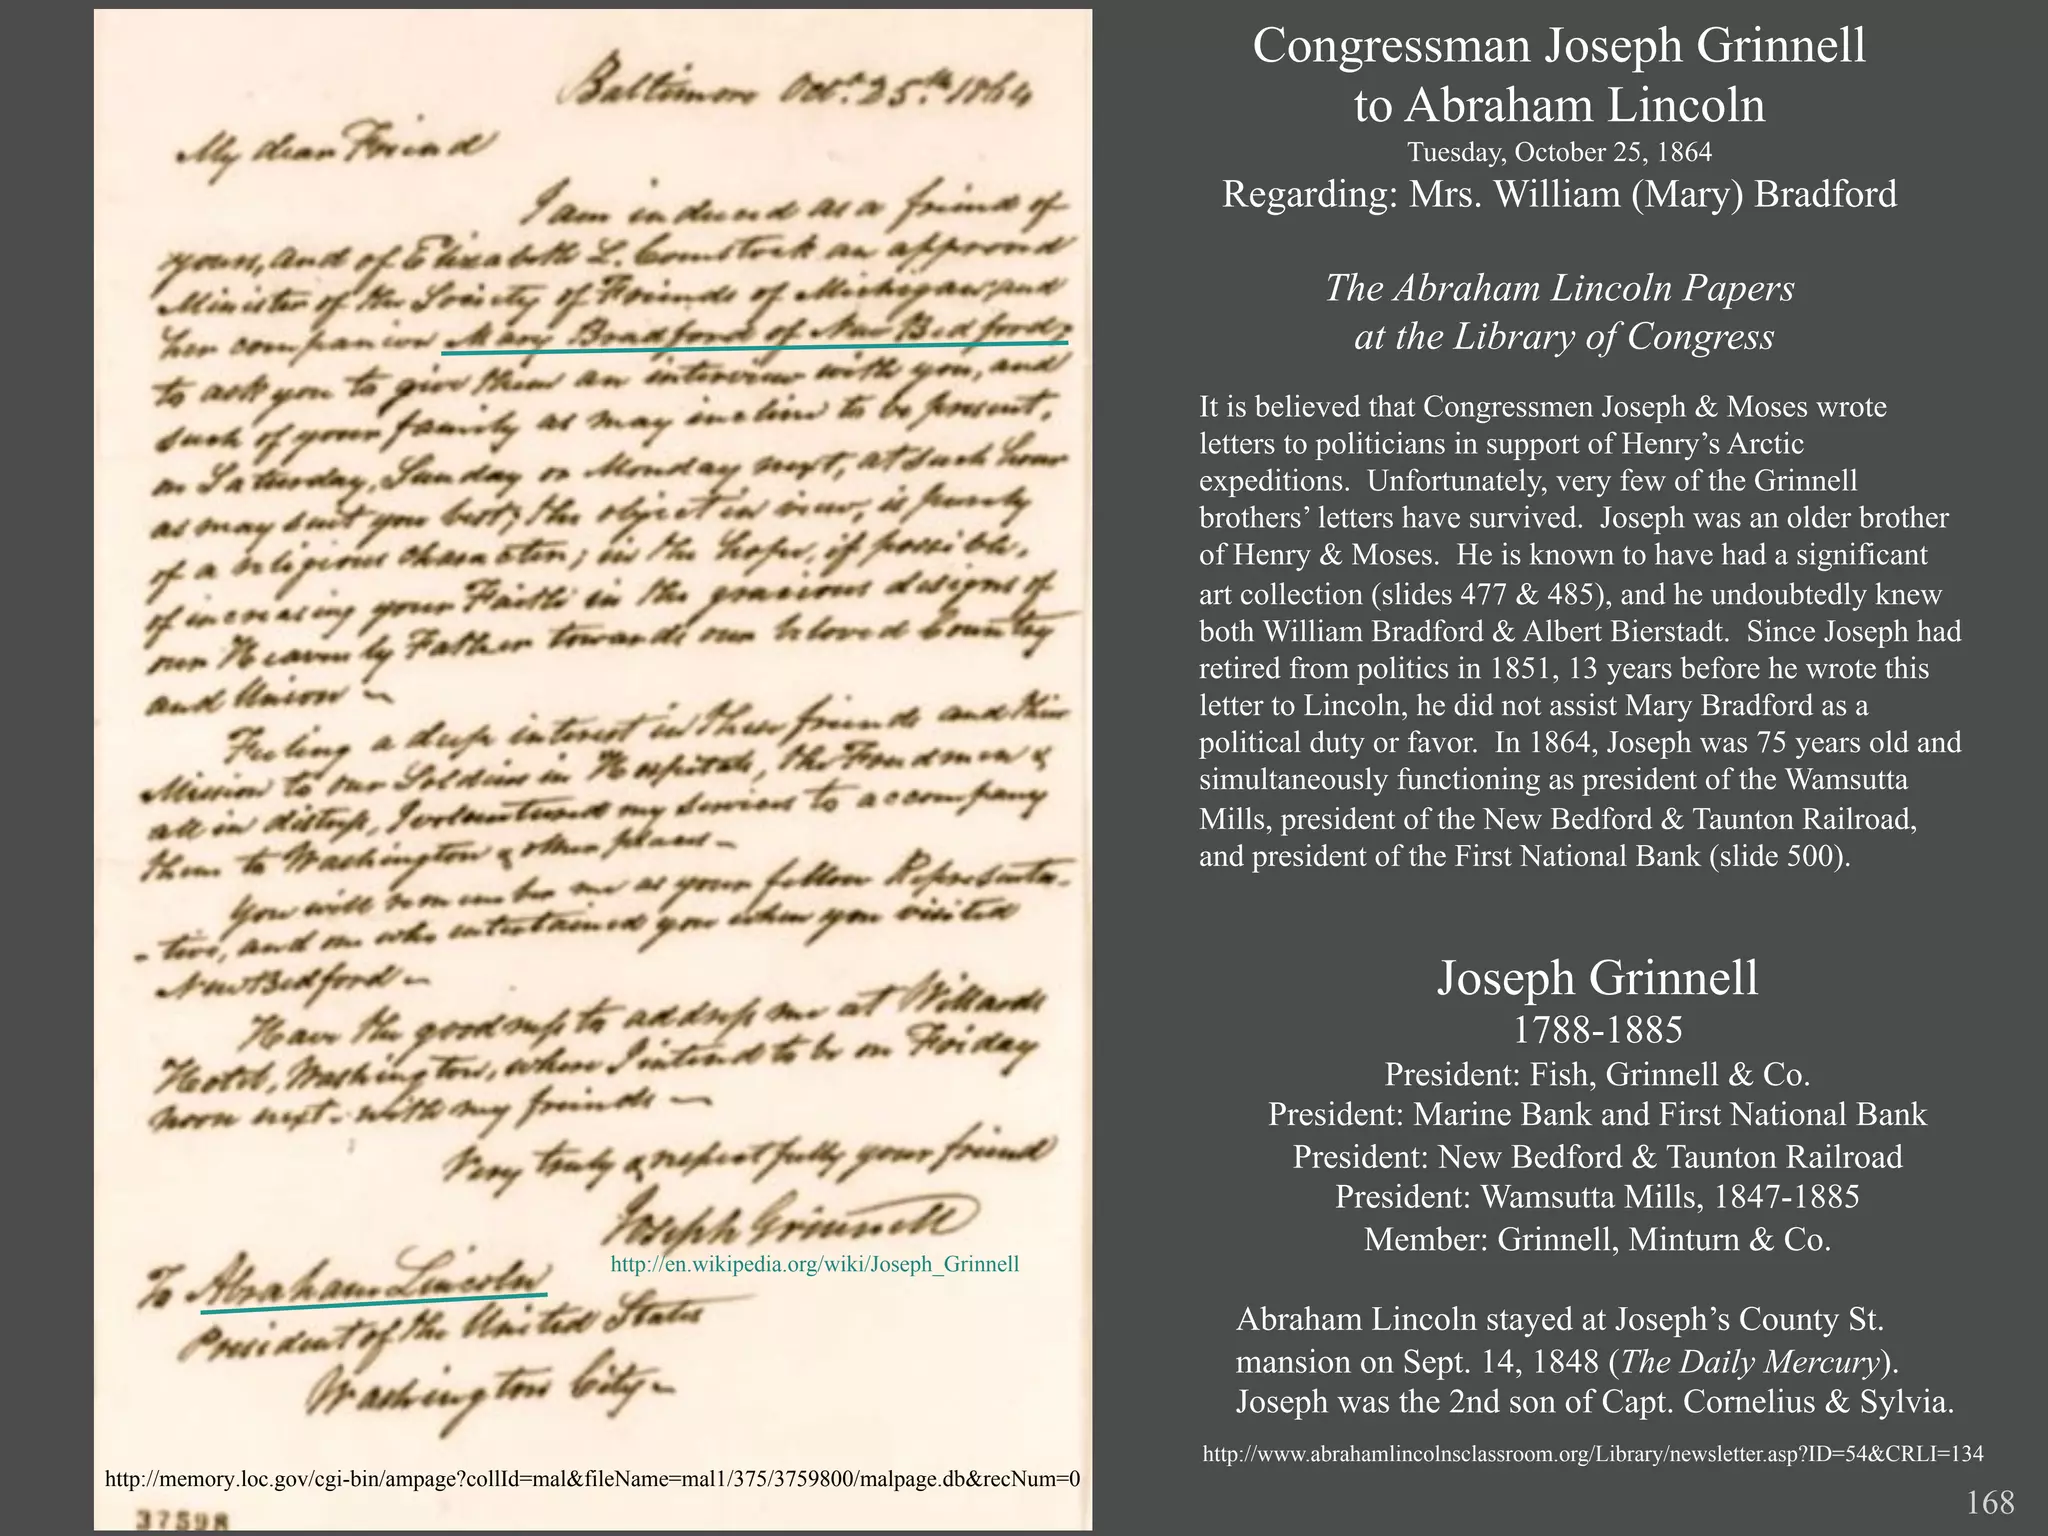 Baltimore Oct. 25th 1864
My dear Friend
I am induced as a friend of
yours, and of Elizabeth L. Comstock an approved
Minister of the Society of Friends of Michigan and
her companion Mary Bradford of New Bedford,
to ask you to give them an interview with you, and
such of your family as may incline to be present,
on Saturday, Sunday or Monday next, at such hour
as may suit you best; the object in view, is purely
of a religious character; in the hope, if possible,
of increasing your Faith in the gracious designs of
our Heavenly Father towards our beloved Country
and Union ~
Feeling a deep interest in these friends and their
Mission to our Soldiers in Hospitals, the Freedmen &
all in distress, I volunteered my services to accompany
them to Washington & other places ~
You will remember me as your fellow Representa-
-tive, and one who entertained you when you visited
New Bedford ~
Have the goodness to address me at Willards
Hotel, Washington, where I intend to be on Friday
noon next - with my friends ~
Very truly & respectfully your friend
Joseph Grinnell
http://en.wikipedia.org/wiki/Joseph_Grinnell
To Abraham Lincoln
President of the United States
Washington City ~
http://memory.loc.gov/cgi-bin/ampage?collId=mal&fileName=mal1/375/3759800/malpage.db&recNum=0
37598
Congressman Joseph Grinnell
to Abraham Lincoln
Tuesday, October 25, 1864
Regarding: Mrs. William (Mary) Bradford
The Abraham Lincoln Papers
at the Library of Congress
It is believed that Congressmen Joseph & Moses wrote
letters to politicians in support of Henry’s Arctic
expeditions.  Unfortunately, very few of the Grinnell
brothers’ letters have survived.  Joseph was an older brother
of Henry & Moses.  He is known to have had a significant
art collection (slides 477 & 485), and he undoubtedly knew
both William Bradford & Albert Bierstadt.  Since Joseph had
retired from politics in 1851, 13 years before he wrote this
letter to Lincoln, he did not assist Mary Bradford as a
political duty or favor.  In 1864, Joseph was 75 years old and
simultaneously functioning as president of the Wamsutta
Mills, president of the New Bedford & Taunton Railroad,
and president of the First National Bank (slide 500).
Joseph Grinnell
1788-1885
President: Fish, Grinnell & Co.
President: Marine Bank and First National Bank
President: New Bedford & Taunton Railroad
President: Wamsutta Mills, 1847-1885
Member: Grinnell, Minturn & Co.
Abraham Lincoln stayed at Joseph’s County St.
mansion on Sept. 14, 1848 (The Daily Mercury).
Joseph was the 2nd son of Capt. Cornelius & Sylvia.
http://www.abrahamlincolnsclassroom.org/Library/newsletter.asp?ID=54&CRLI=134
168